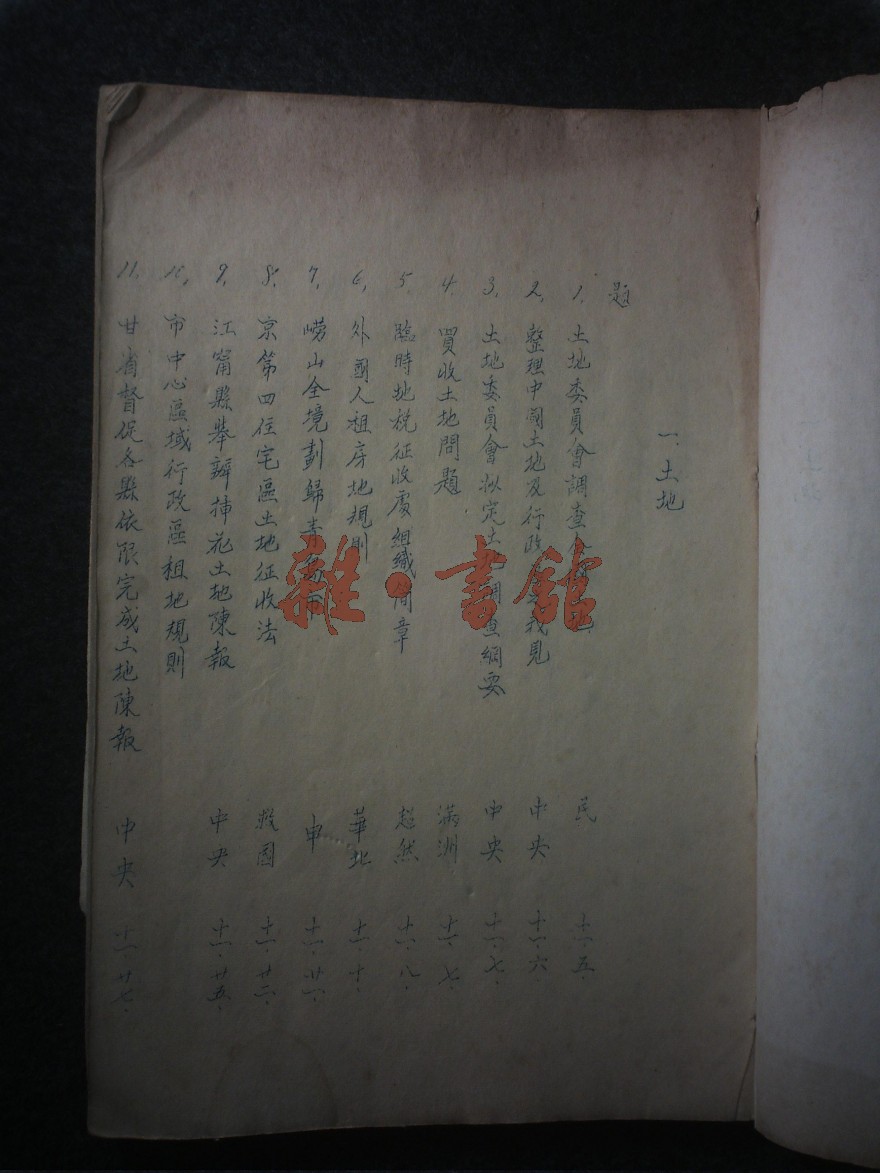 一. 土地
題
1. 土地委員會調查 民 十一.五.
2. 整理中國土地及行政 我見 中央 十一.六.
3. 土地委員會拟定土 調查綱要 中央 十一.七.
4. 買收土地問題 滿洲 十一.七.
5. 臨時地税征收處組織簡章 超然 十一.八.
6. 外國人租房地規則 華北 十一.十.
7. 嶗山全境劃歸青島市 申 十一.廿一.
8. 京第四住宅區土地征收法 救國 十一.廿二.
9. 江甯縣舉辦插花土地陳報 中央 十一.廿五.
10. 市中心區域行政區租地規則
11. 甘省督促各縣依限完成土地陳報 中央 十一.廿七.
雜·書館